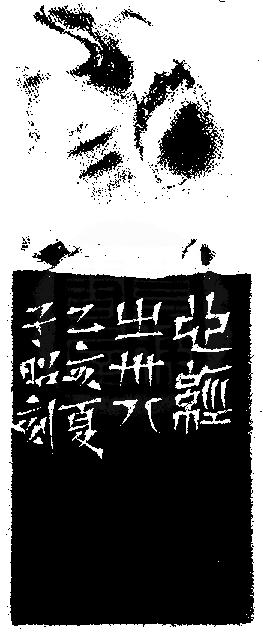 心經
之卅八
乙亥夏
子昭刻